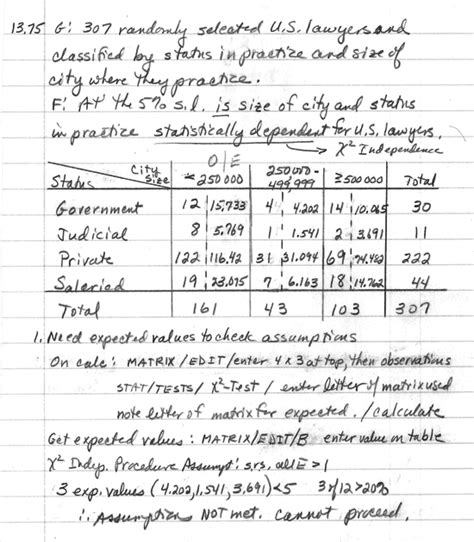 13.75 G: 307 randomly selected U.S. lawyers and
classified by status in practice and size of
city where they practice.
F: At the 5% s.l. is size of city and status
in practice statistically dependent for U.S. lawyers.
χ² Independence
O | E
Status City Size <250 000 250 000 - 499,999 ≥500 000 Total
Government 12 15.733 4 4.202 14 10.065 30
Judicial 8 5.769 1 1.541 2 3.691 11
Private 122 116.42 31 31.094 69 74.482 222
Salaried 19 23.075 7 6.163 18 14.762 44
Total 161 43 103 307
1. Need expected values to check assumptions
On calc: MATRIX/EDIT/enter 4x3 at top, then observations
STAT/TESTS/ χ²-Test / enter letter of matrix used
note letter of matrix for expected. /calculate
Get expected values: MATRIX/EDIT/B enter value on table
χ² Indep. Procedure Assumpt: s.r.s. all E > 1
3 exp. values (4.202, 1.541, 3.691) < 5 3/12 > 20%
∴ Assumptions NOT met. Cannot proceed.